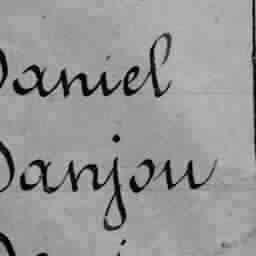 Daniel
Danjou